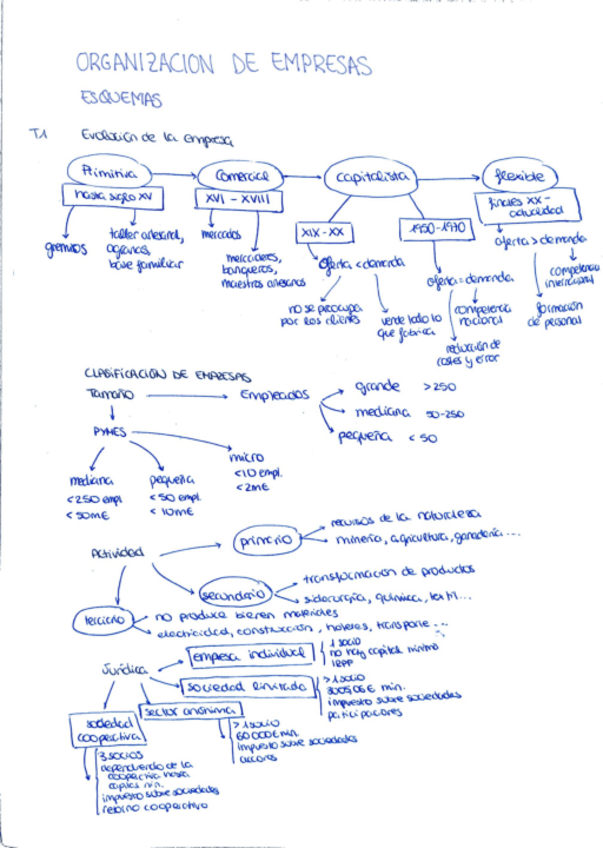 ORGANIZACION DE EMPRESAS
ESQUEMAS
T.1 Evolución de la empresa
Primitiva
Comercial
capitalista
flexible
hasta siglo XV
XVI - XVIII
finales XX -
actualidad
XIX - XX
1950 - 1970
gremios
taller artesanal,
agrarias,
base familiar
mercados
mercaderes,
banqueros,
maestros artesanos
oferta < demanda
oferta = demanda
oferta > demanda
no se preocupa
por los clientes
vende todo lo
que fabrica
competencia
nacional
reducción de
costes y error
competencia
internacional
formación
de personal
CLASIFICACIÓN DE EMPRESAS
Tamaño
Empleados
grande > 250
mediana 50-250
pequeña < 50
PYMES
mediana
< 250 empl
< 50m€
pequeña
< 50 empl.
< 10m€
micro
< 10 empl.
< 2m€
Actividad
primario
recursos de la naturaleza
minería, agricultura, ganadería...
secundario
transformación de productos
siderurgia, química, textil...
terciario
no produce bienes materiales
electricidad, construcción, hoteles, transporte...
Jurídica
empresa individual
1 socio
no hay capital mínimo
IRPF
sociedad limitada
> 1 socio
3005,06€ min.
impuesto sobre sociedades
participaciones
sector anónima
> 1 socio
60 000€ min.
impuesto sobre sociedades
acciones
sociedad
cooperativa
3 socios
dependiendo de la
cooperativa
capital min.
impuesto sobre sociedades
retorno cooperativo